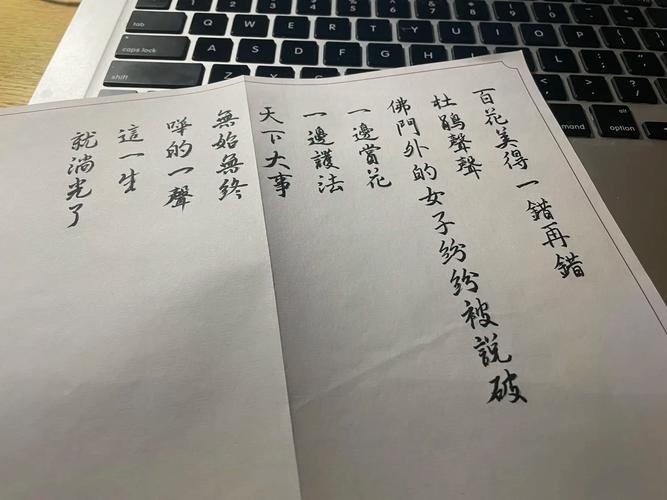 百花美得一錯再錯
杜鵑聲聲
佛門外的女子紛紛被說破
一邊當花
一邊護法
天下大事
無始無終
嘩的一聲
這一生
就淌光了
caps lock
shift
A
S
D
F
G
H
J
K
L
Q
W
E
R
T
Z
command
option